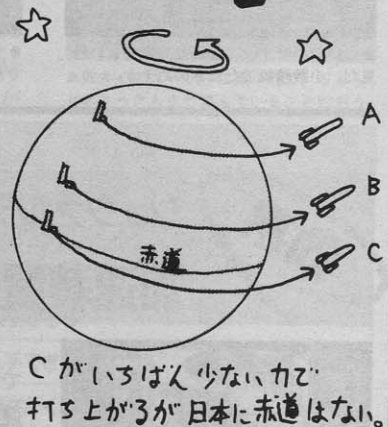 A
B
赤道
C
Cがいちばん少ない力で
打ち上がるが日本に赤道はない。